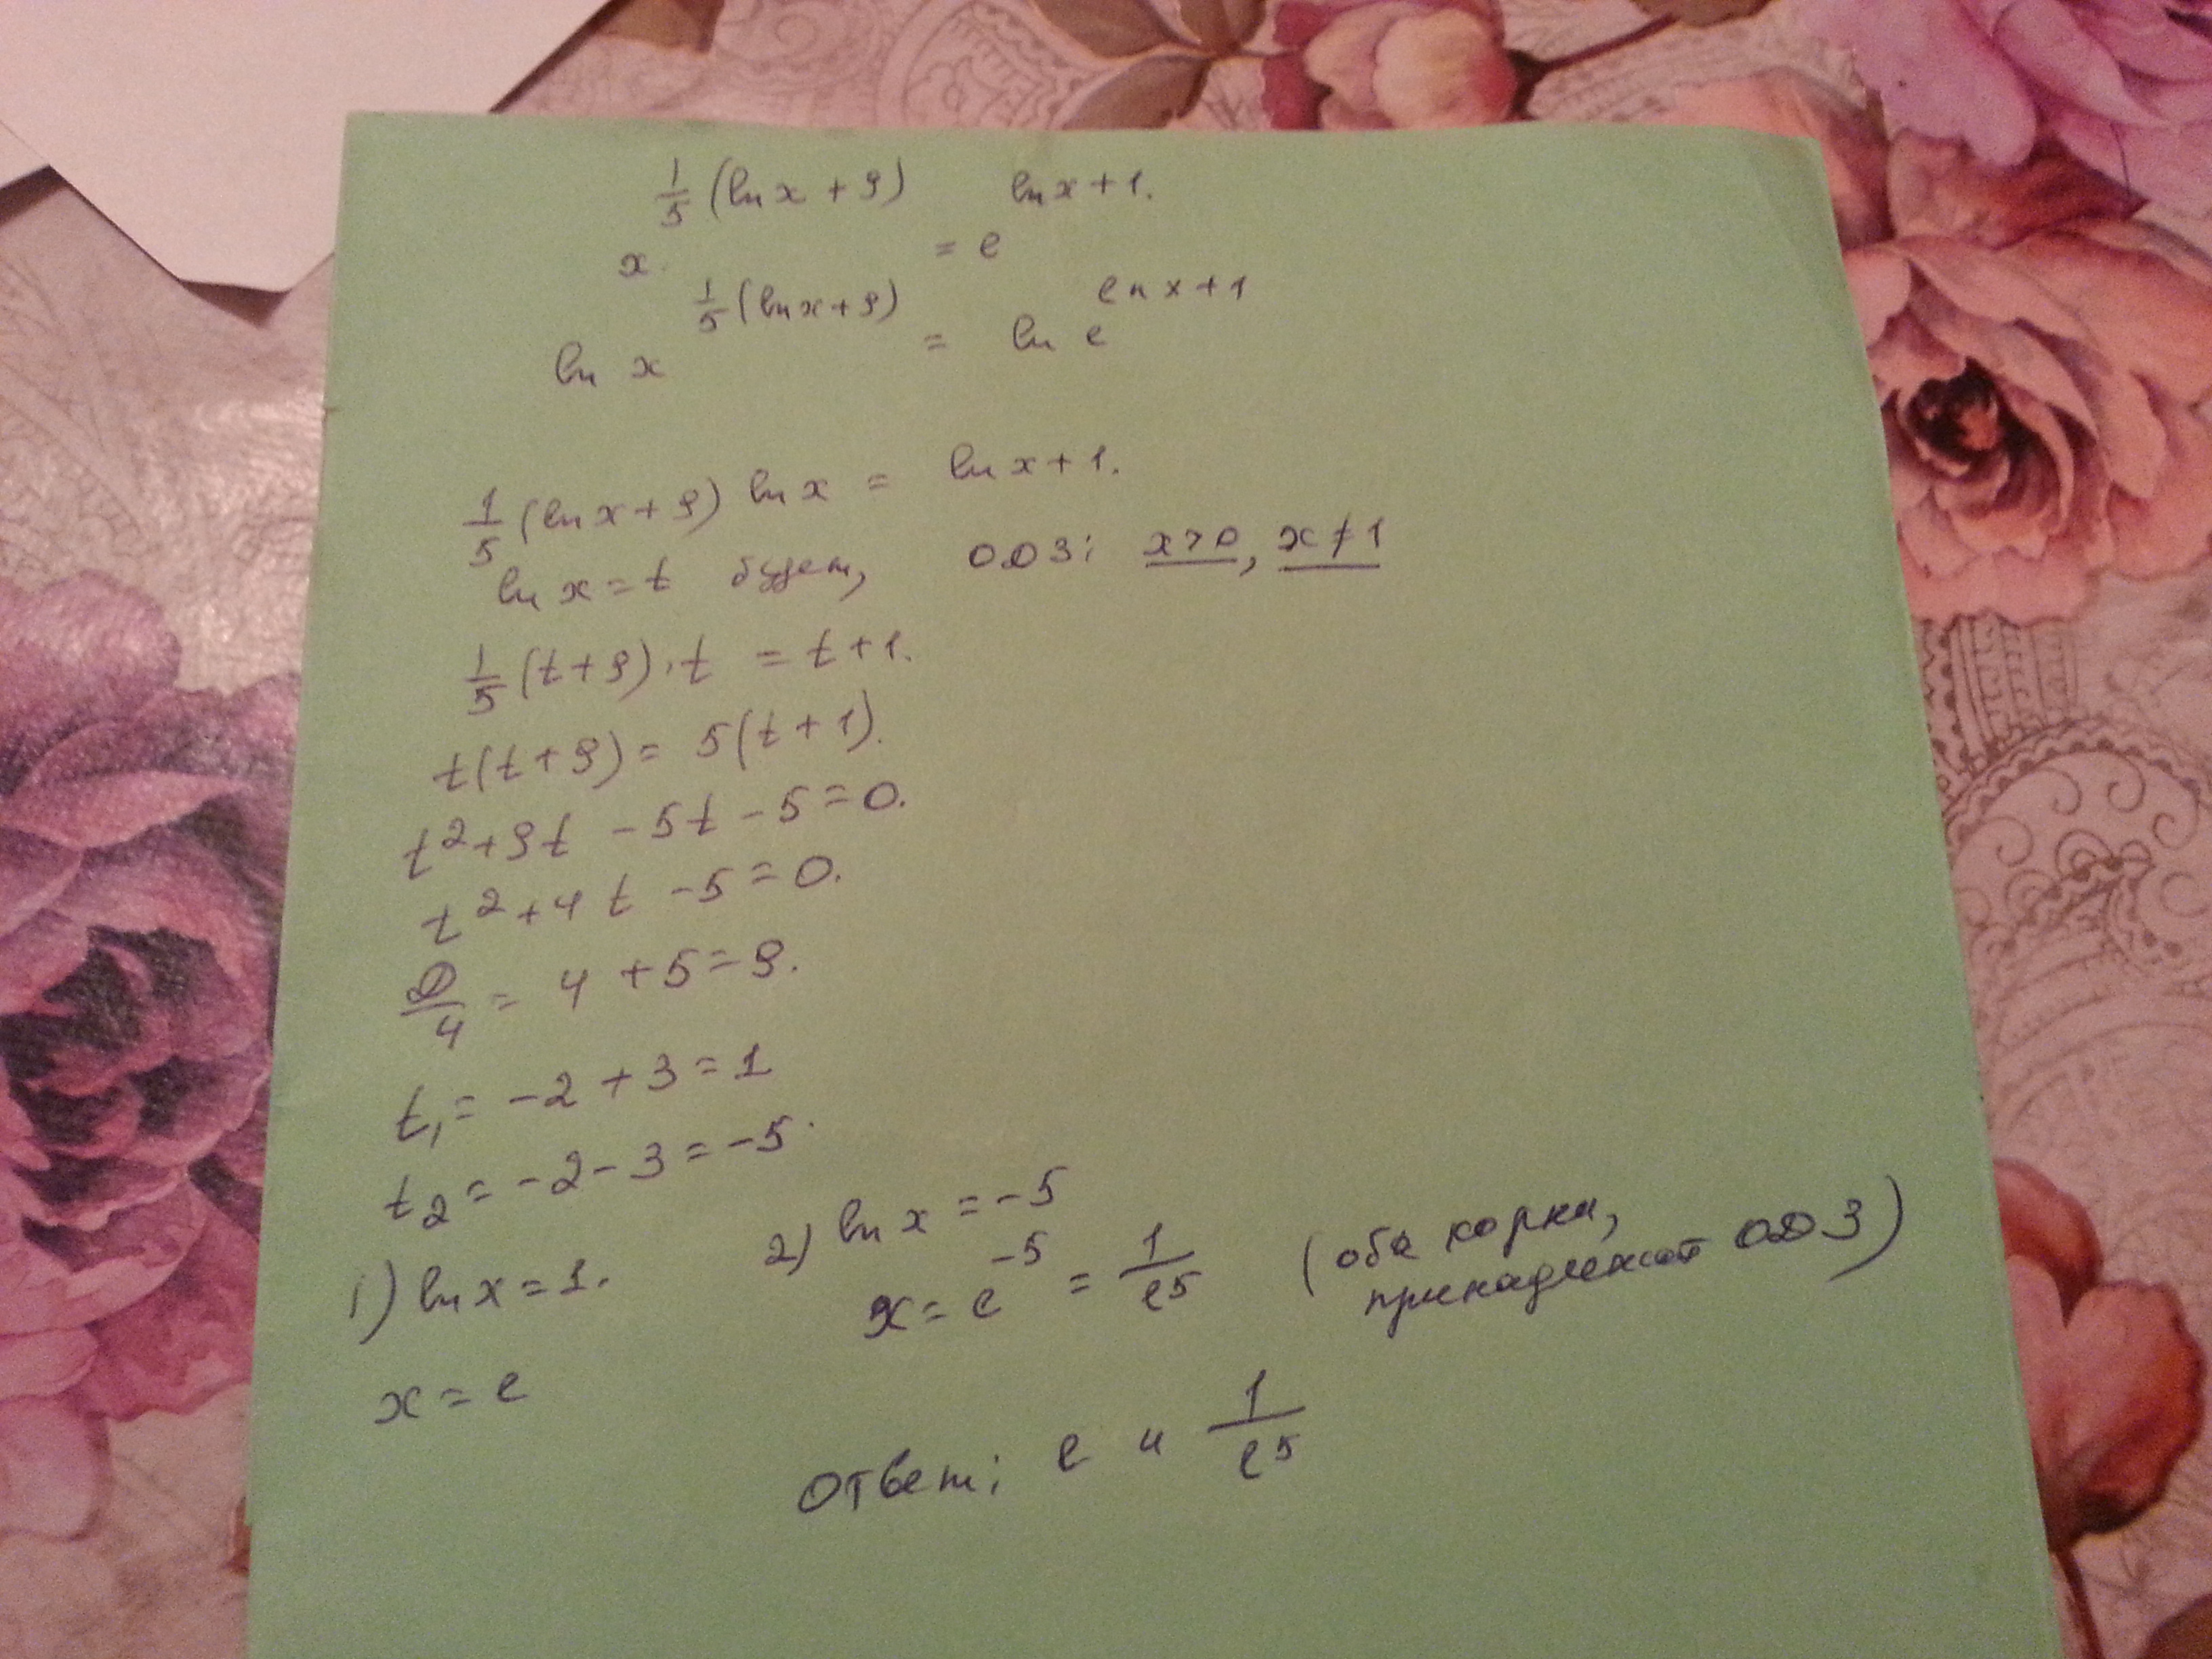 x^{\frac{1}{5}(ln x + 9)} = e^{ln x + 1}.
ln x^{\frac{1}{5}(ln x + 9)} = ln e^{ln x + 1}
\frac{1}{5}(ln x + 9) ln x = ln x + 1.
ln x = t будет, ОДЗ: x > 0, x ≠ 1
\frac{1}{5}(t + 9) · t = t + 1.
t(t + 9) = 5(t + 1).
t² + 9t - 5t - 5 = 0.
t² + 4t - 5 = 0.
\frac{D}{4} = 4 + 5 = 9.
t₁ = -2 + 3 = 1
t₂ = -2 - 3 = -5.
1) ln x = 1.
x = e
2) ln x = -5
x = e^{-5} = \frac{1}{e^5}
(оба корни,
принадлежат ОДЗ)
Ответ: e и \frac{1}{e^5}